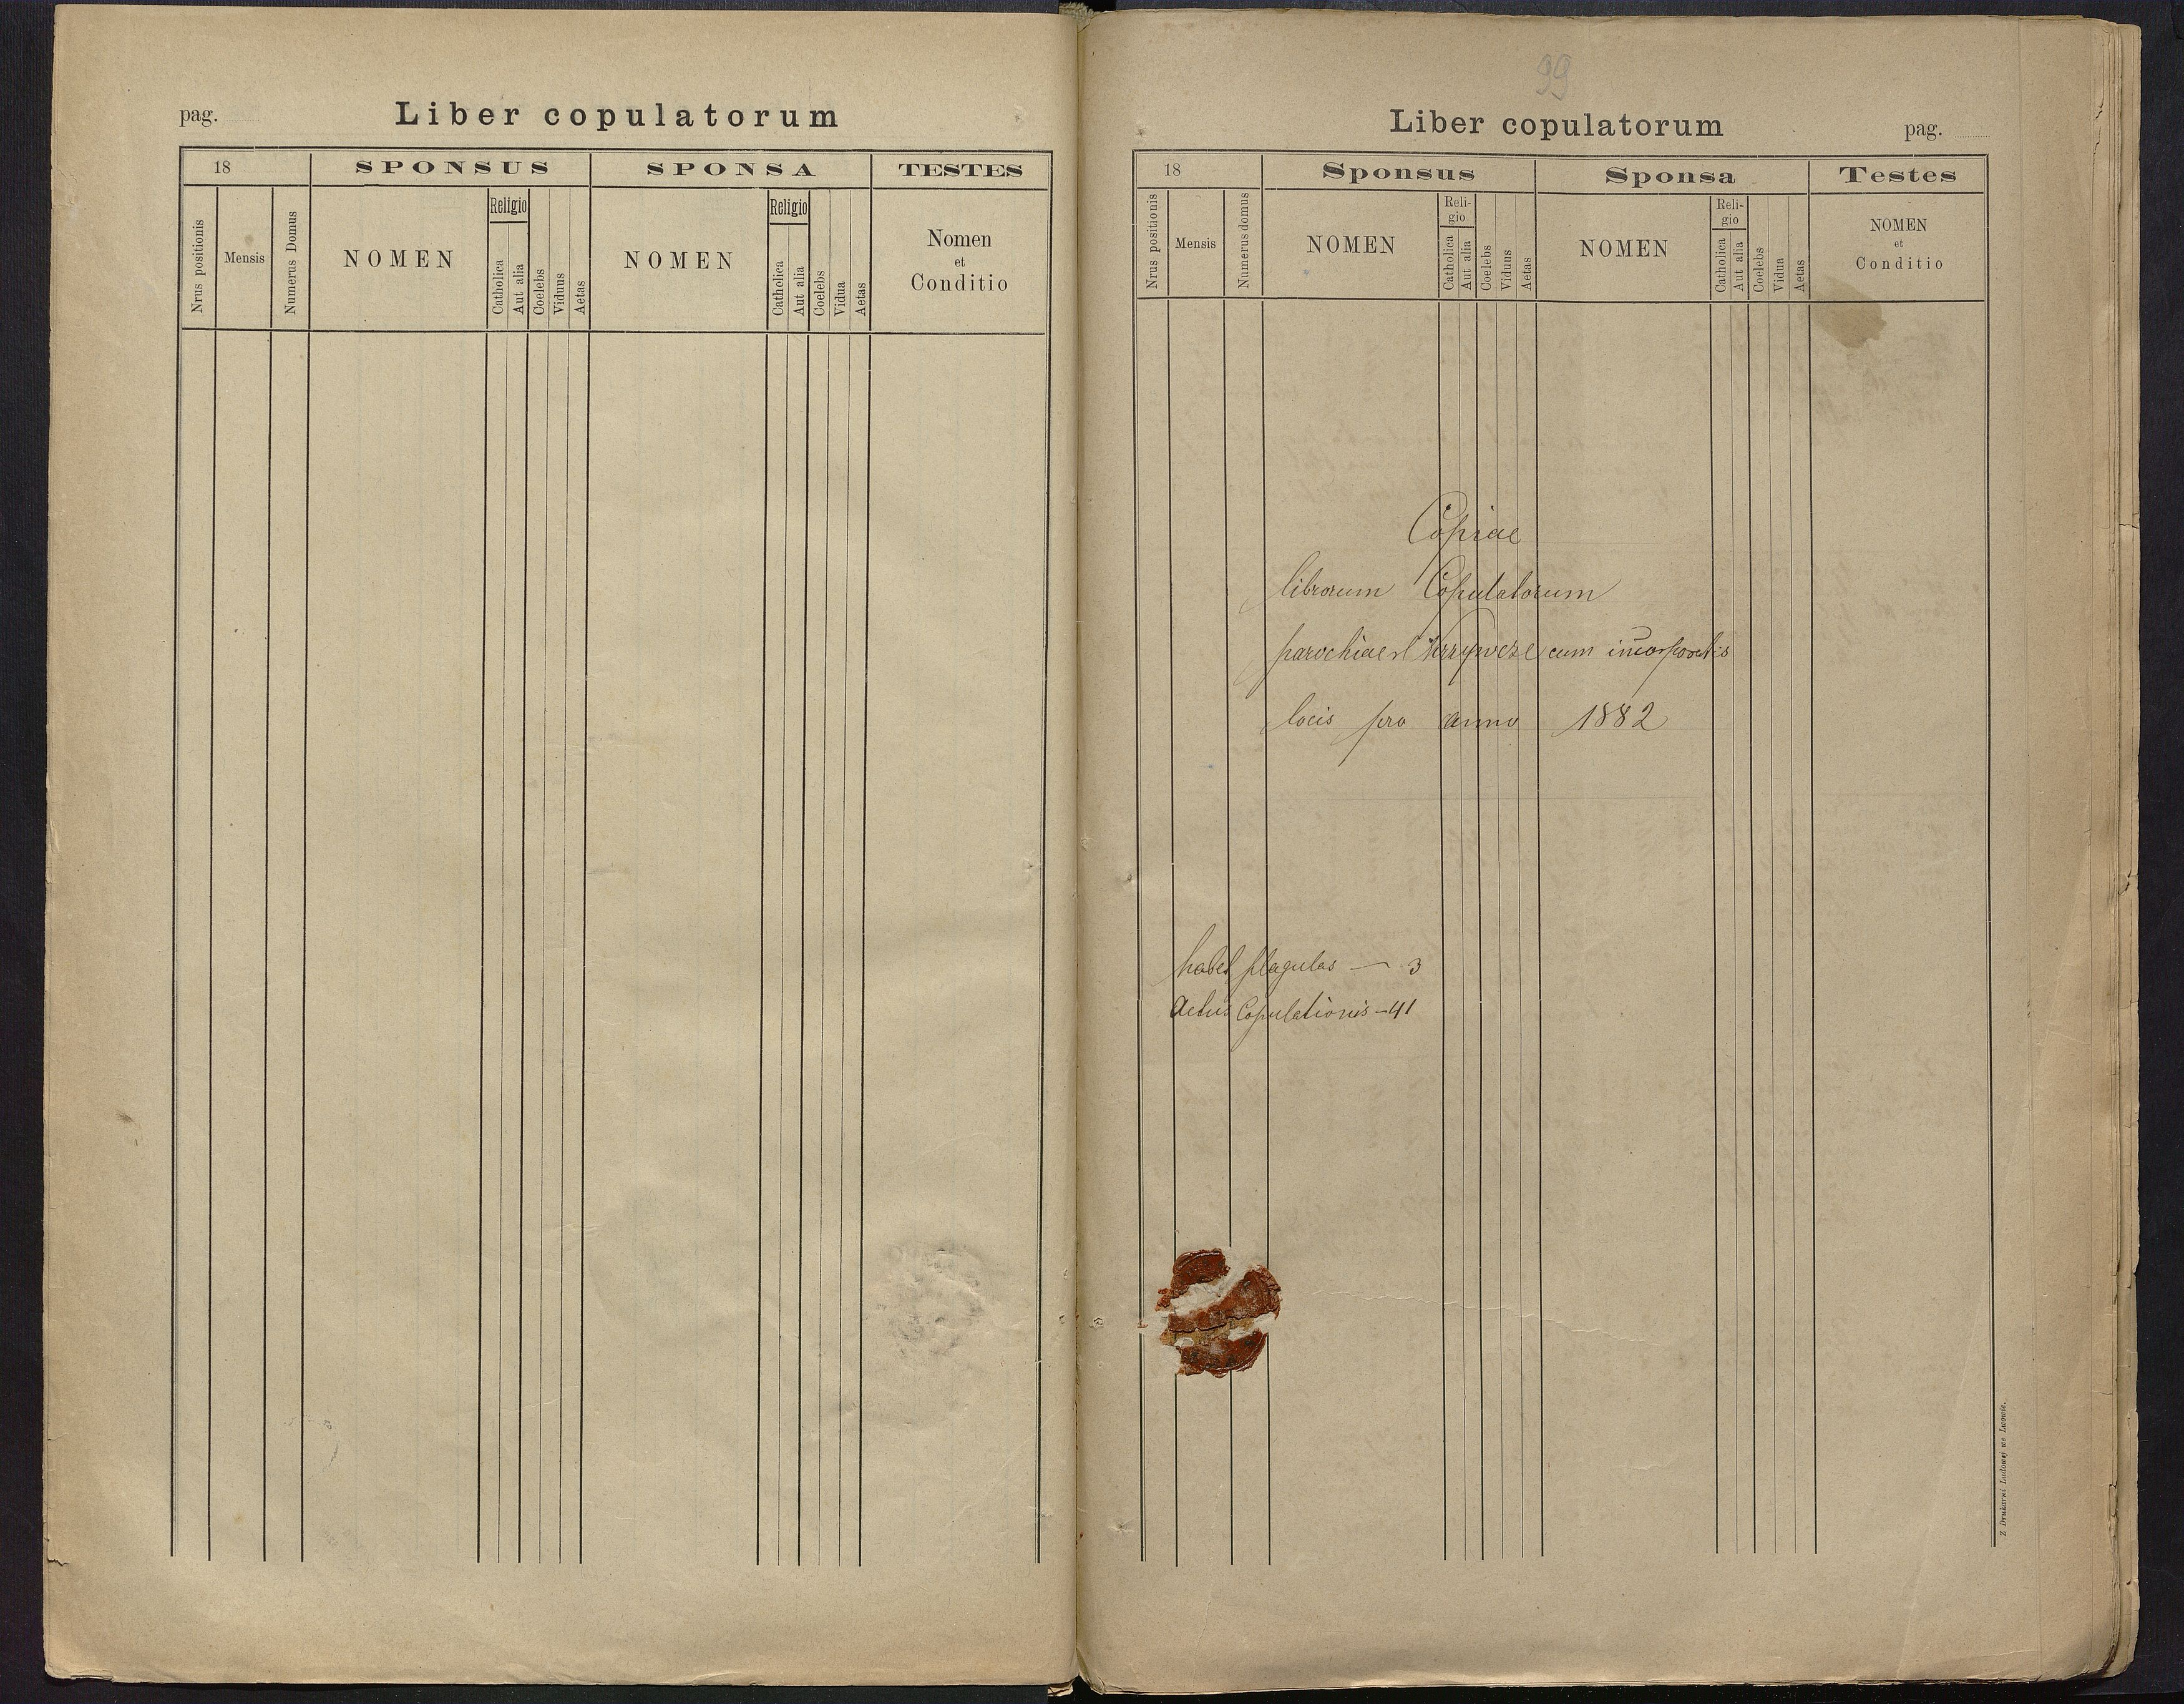 pag.
Liber copulatorum
18
SPONSUS
SPONSA
TESTES
Nrus positionis
Mensis
Numerus Domus
NOMEN
Religio
Catholica
Aut alia
Coelebs
Viduus
Aetas
NOMEN
Religio
Catholica
Aut alia
Coelebs
Vidua
Aetas
Nomen
et
Conditio
99
Liber copulatorum
pag.
18
Sponsus
Sponsa
Testes
Nrus positionis
Mensis
Numerus domus
NOMEN
Reli-
gio
Catholica
Aut alia
Coelebs
Viduus
Aetas
NOMEN
Reli-
gio
Catholica
Aut alia
Coelebs
Vidua
Aetas
NOMEN
et
Conditio
Copiae
librorum Copulatorum
parochiae cum incorporatis
locis pro anno 1882
habet plagulas — 3
Actus Copulationis — 41
Z Drukarni Ludowej we Lwowie.